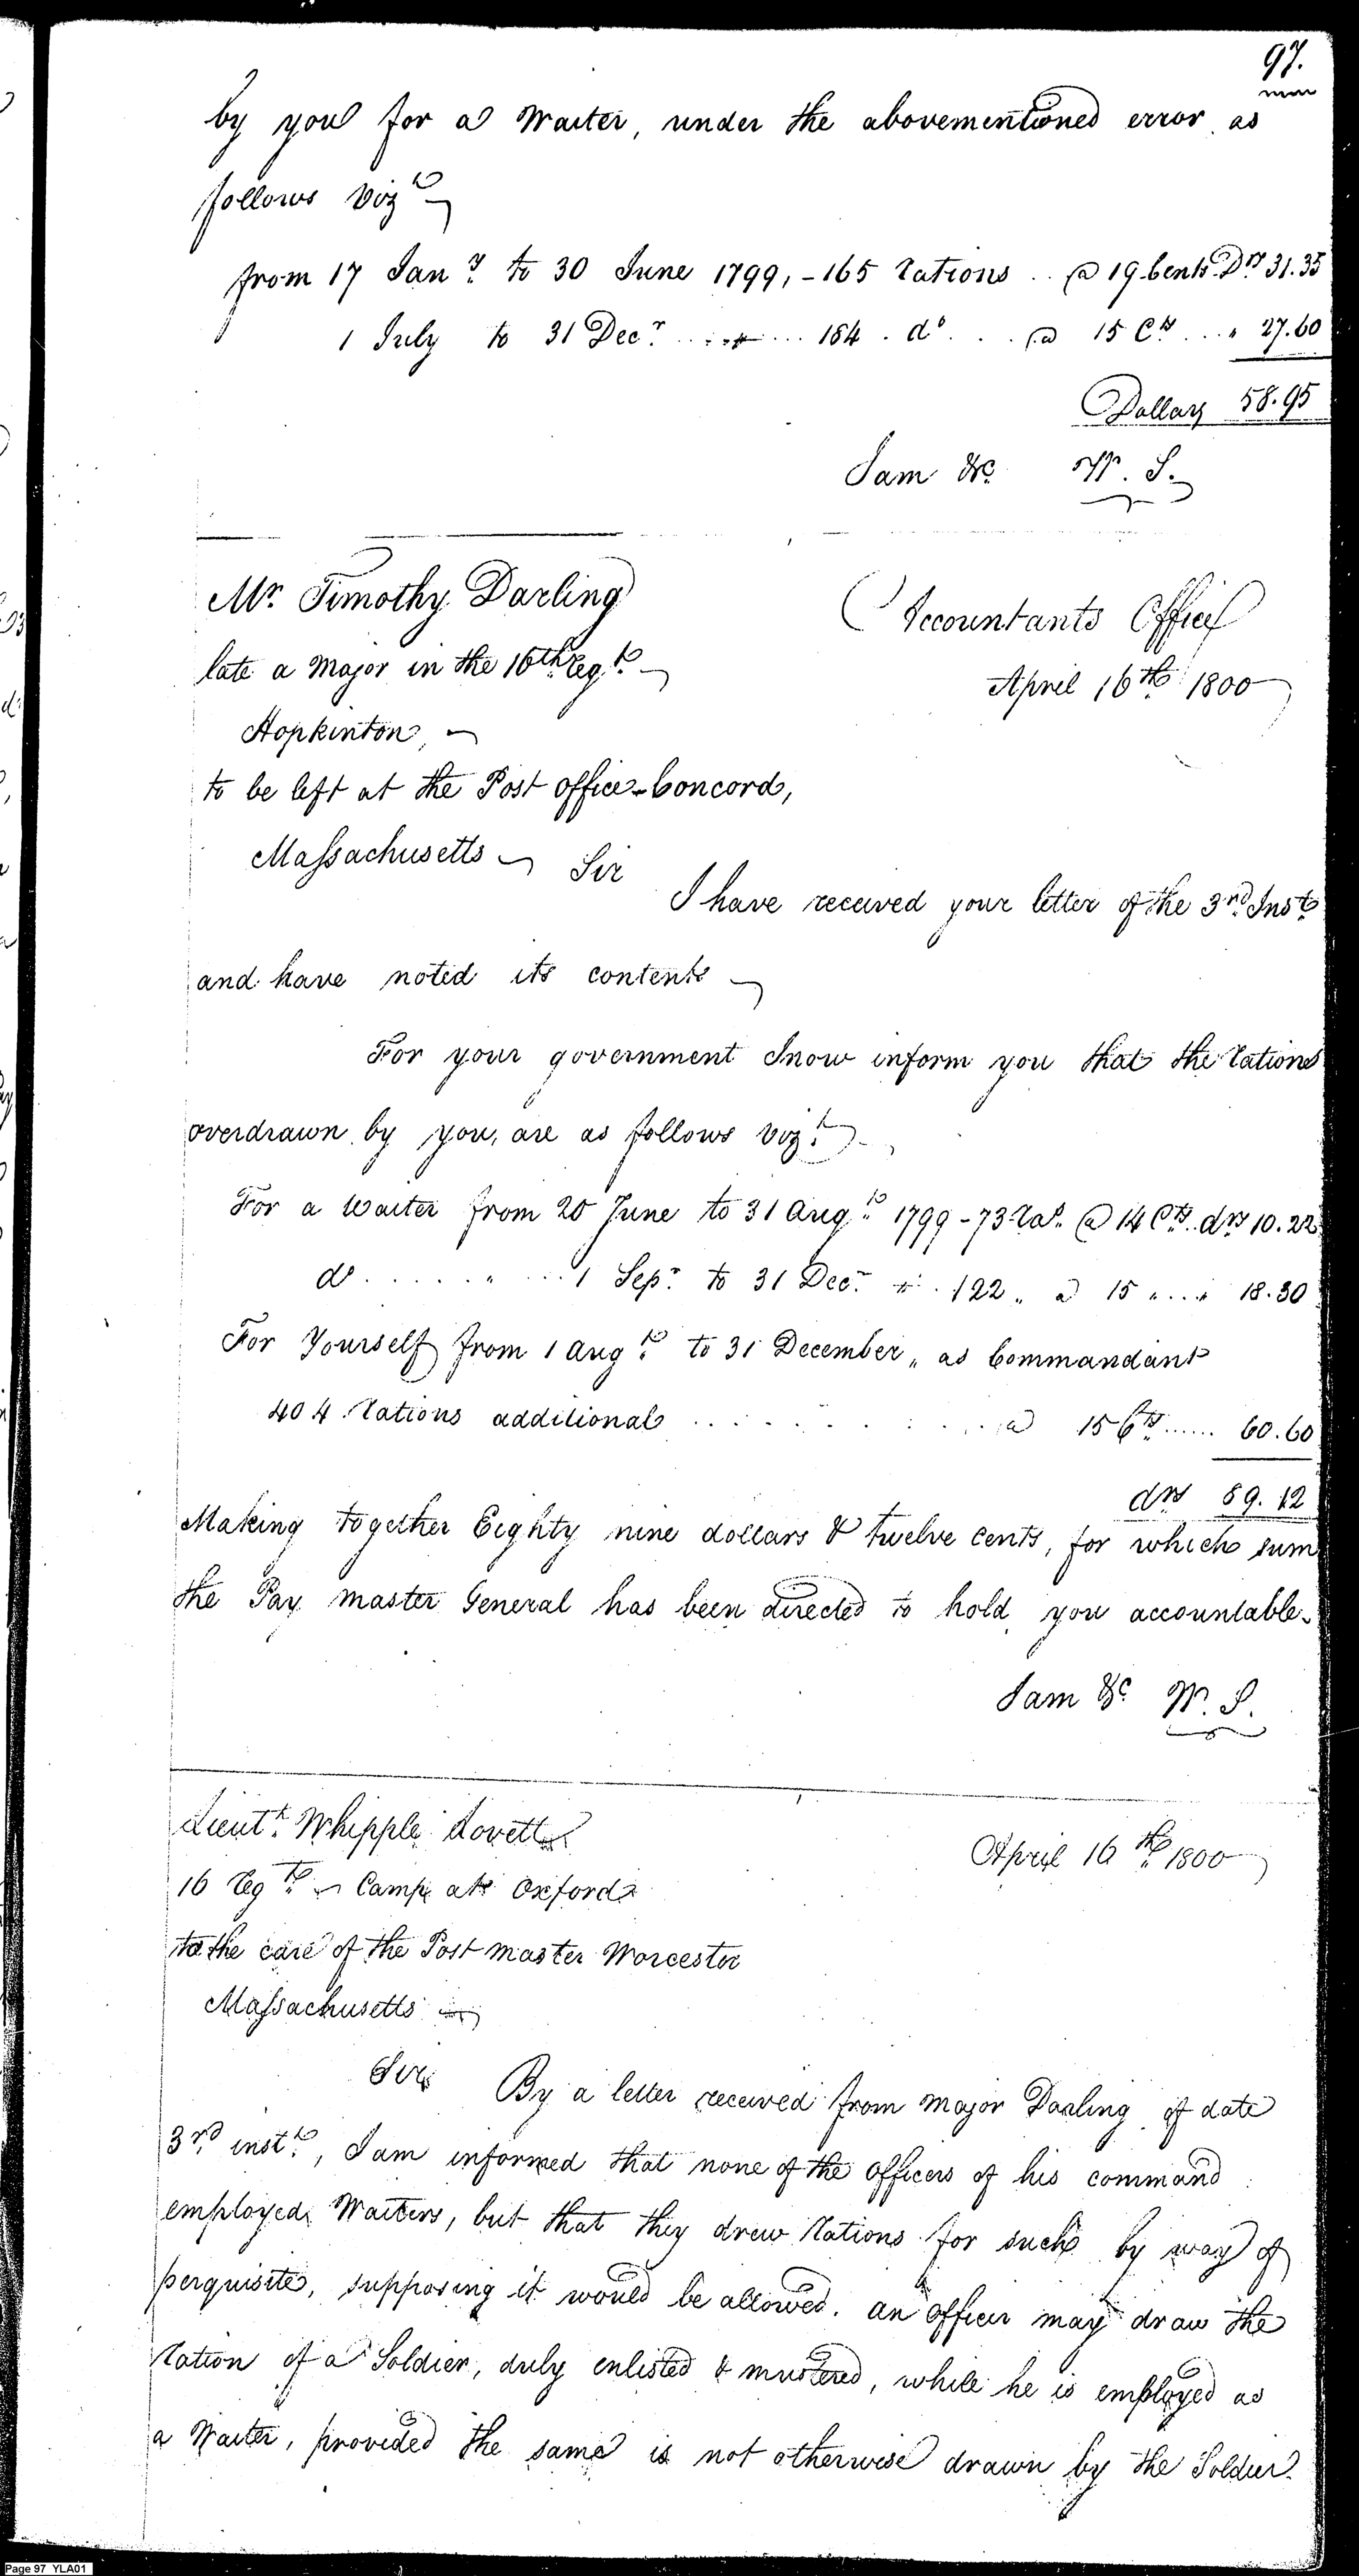 97.
by you for a Waiter, under the abovementioned error as
follows Vizt
from 17 Jany to 30 June 1799, - 165 rations .. @ 19 Cents Drs 31.35
1 July to 31 Decr ..... " ... 184 . do . . . @ 15 Cts ... " 27.60
Dollars 58.95
I am &c. W. S.
Mr. Timothy Darling
Accountants Office
late a Major in the 16th Regt
April 16th 1800
Hopkinton,
to be left at the Post office Concord,
Massachusetts
Sir
I have received your letter of the 3rd Inst
and have noted its contents
For your government I now inform you that the rations
overdrawn by you, are as follows vizt.
For a Waiter from 20 June to 31 Augt 1799 - 73 ras. @ 14 Cts. drs 10.22
do ...... " ... 1 Sepr to 31 Decr " . 122 " @ 15 " ... " 18.30
For Yourself from 1 Augt to 31 December " as Commandant
404 rations additional ........... @ 15 Cts ...... 60.60
drs 89.12
Making together Eighty nine dollars & twelve cents, for which sum
the Pay master General has been directed to hold you accountable.
I am &c W. S.
Lieutt. Whipple Lovett
April 16th 1800
16 Regt Camp at Oxford
to the care of the Post master Worcester
Massachusetts
Sir
By a letter received from Major Darling of date
3rd inst, I am informed that none of the officers of his command
employed Waiters, but that they drew rations for such by way of
perquisite, supposing it would be allowed. an officer may draw the
ration of a Soldier, duly enlisted & mustered, while he is employed as
a Waiter, provided the same is not otherwise drawn by the Soldier.
Page 97 YLA01